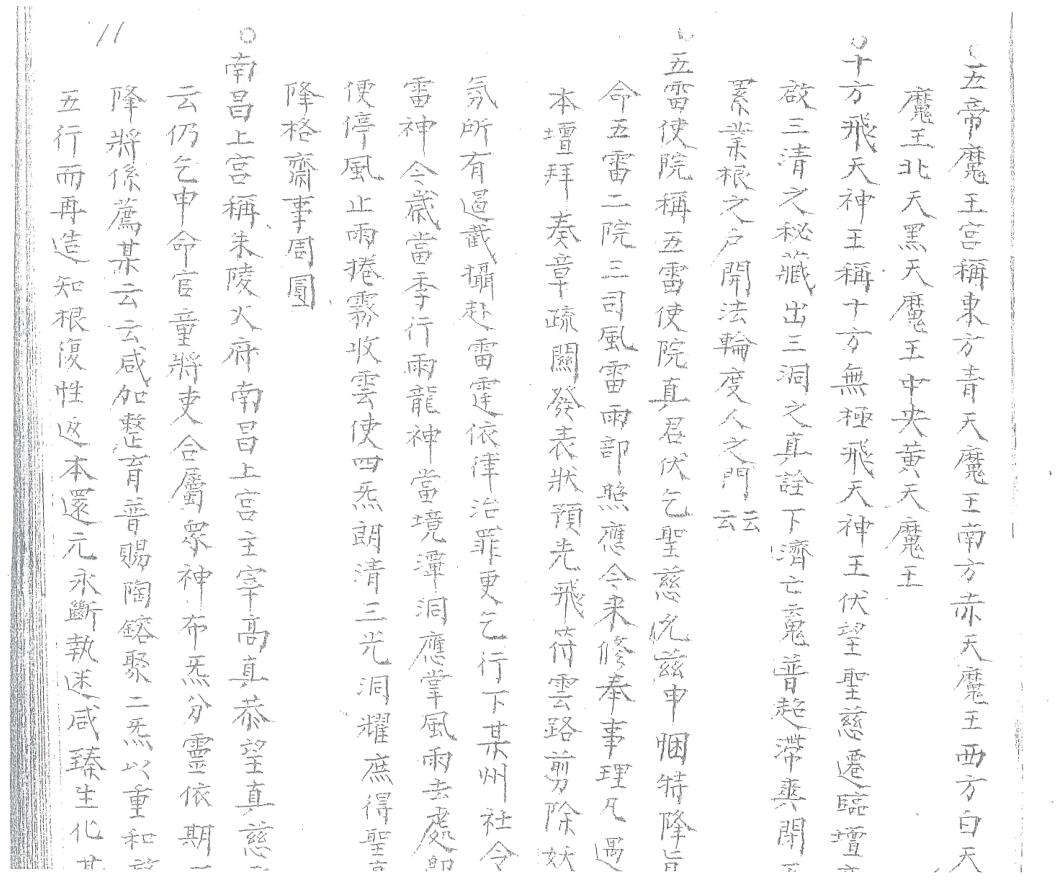 ○五帝魔王宮稱東方青天魔王南方赤天魔王西方白天
魔王北天黑天魔王中央黃天魔王
○十方飛天神王稱十方無極飛天神王伏望聖慈遷臨壇
啟三清之秘藏出三洞之真詮下濟亡䰟普超滯爽閉
累業根之戶開法輪度人之門云云
○五雷使院稱五雷使院真君伏乞聖慈允茲申悃特降旨
命五雷二院三司風雷雨部照應今来修奉事理凡遇
本壇拜奏章疏關發表狀預先飛符雲路剪除妖
氛所有邀截攝赴雷霆依律治罪更乞行下某州社令
雷神今歲當季行雨龍神當境潭洞應掌風雨去處即
便停風止雨捲霧收雲使四炁朗清三光洞耀庶得聖
降格齋事周圓
○南昌上宮稱朱陵火府南昌上宮主宰高真恭望真慈
云仍乞申命官童將吏合屬衆神布炁分靈依期
降將係薦某云云咸加整育普賜陶鎔聚二炁以重和
五行而再造知根復性返本還元永斷執迷咸臻生化
11